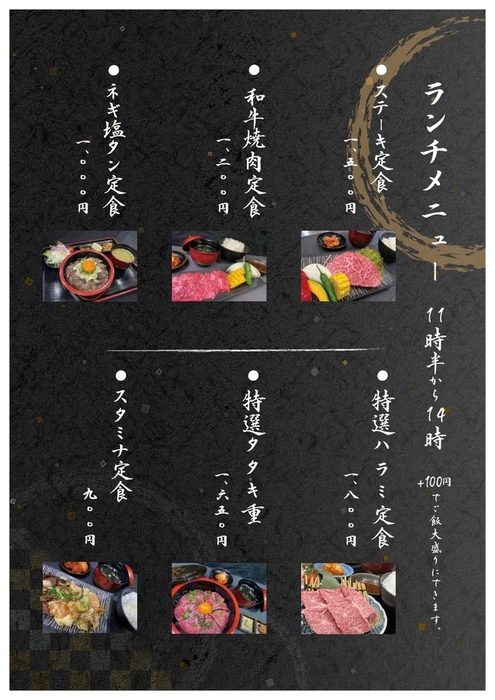 ランチメニュー 11時半から14時
+100円でご飯大盛りにできます。
●ステーキ定食
一、五〇〇円
●和牛焼肉定食
一、二〇〇円
●ネギ塩タン定食
一、〇〇〇円
●特選ハラミ定食
一、八〇〇円
●特選タタキ重
一、六五〇円
●スタミナ定食
九〇〇円